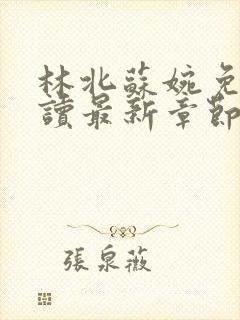 林北蘇婉免
讀最新章節
張泉薇